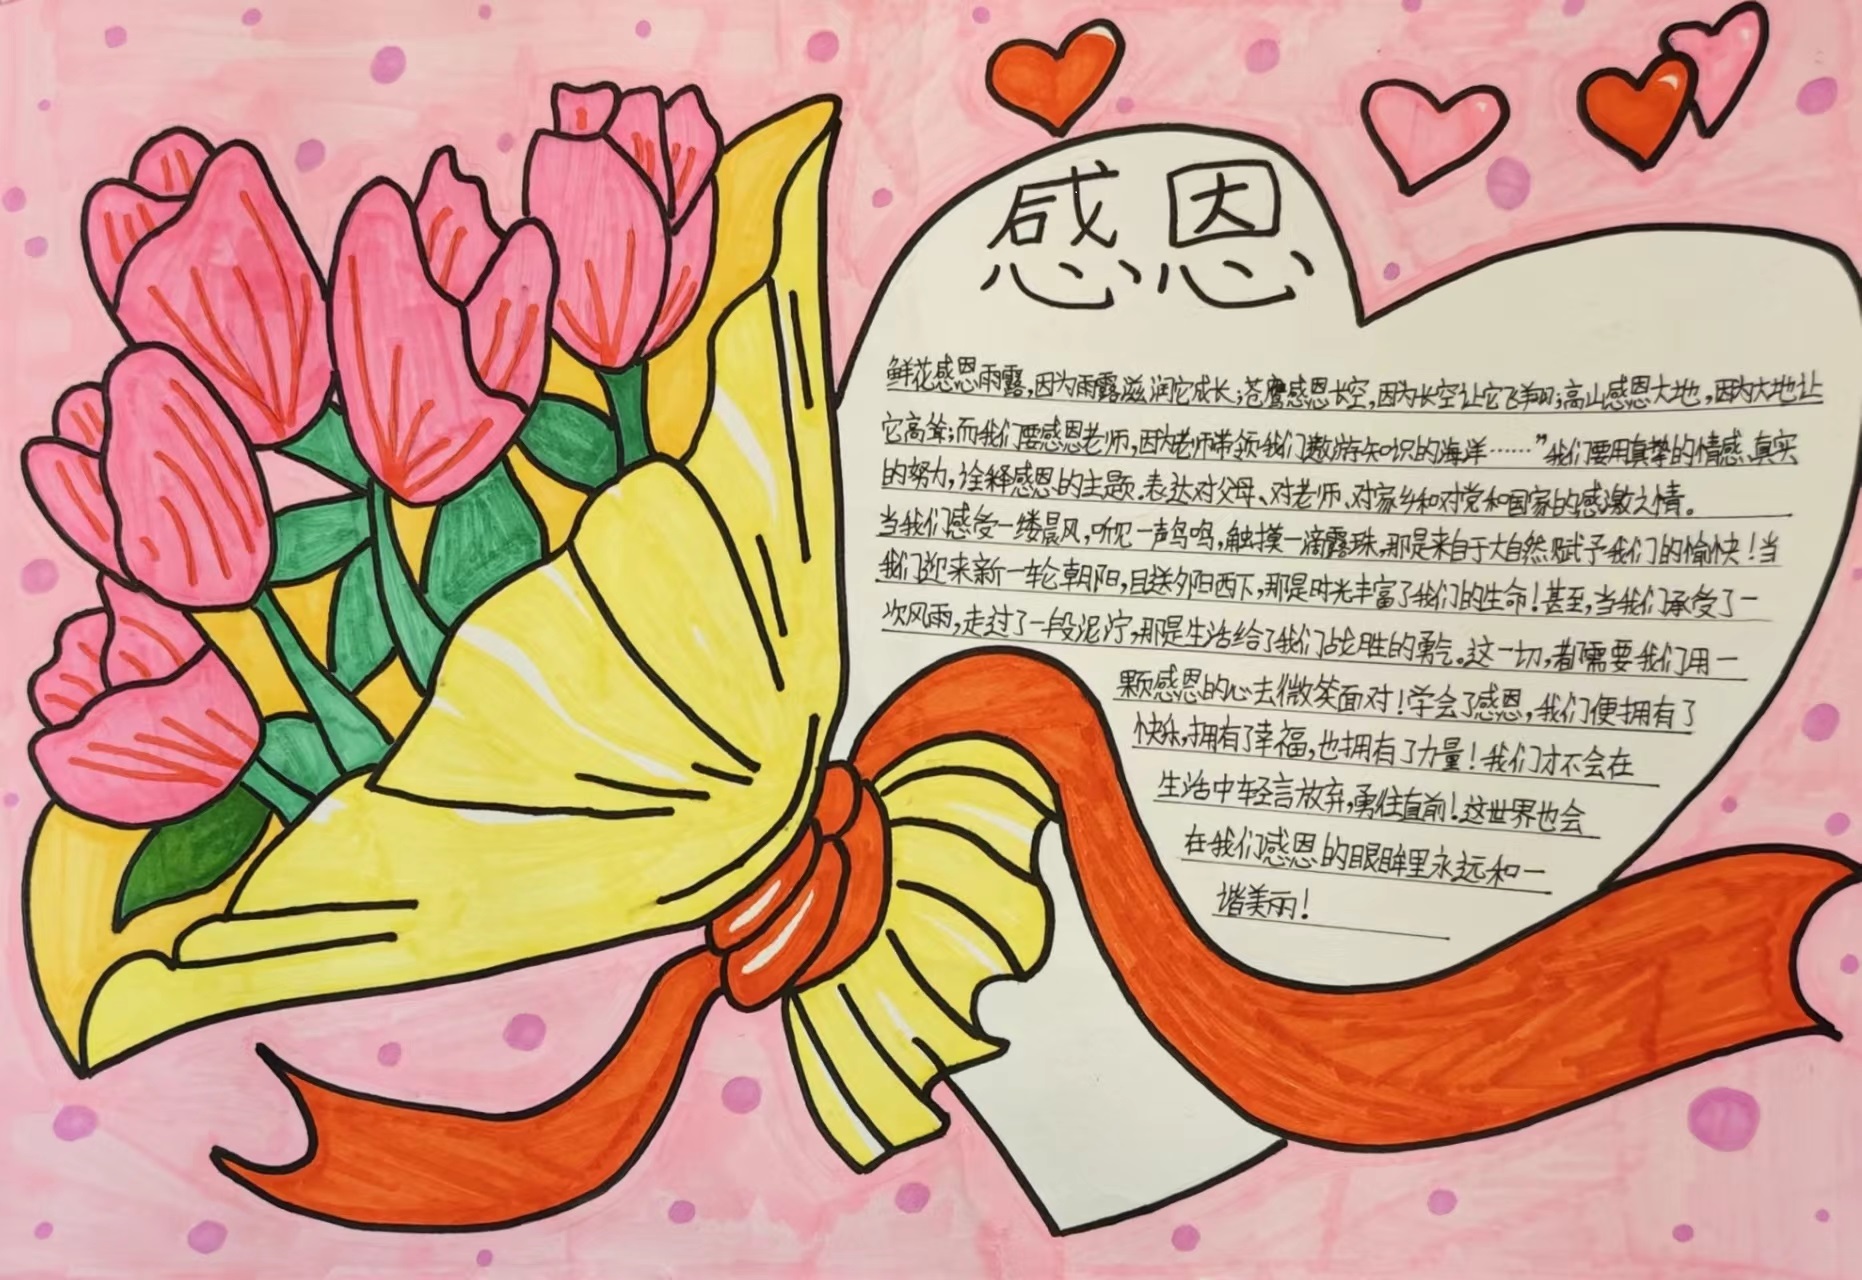 感恩
鲜花感恩雨露,因为雨露滋润它成长;苍鹰感恩长空,因为长空让它飞翔;高山感恩大地,因为大地让
它高耸;而我们要感恩老师,因为老师带领我们遨游知识的海洋……”我们要用真挚的情感、真实
的努力,诠释感恩的主题.表达对父母、对老师、对家乡和对党和国家的感激之情。
当我们感受一缕晨风,听见一声鸟鸣,触摸一滴露珠,那是来自于大自然赋予我们的愉快!当
我们迎来新一轮朝阳,目送夕阳西下,那是时光丰富了我们的生命!甚至,当我们承受了一
次风雨,走过了一段泥泞,那是生活给了我们战胜的勇气。这一切,都需要我们用一
颗感恩的心去微笑面对!学会了感恩,我们便拥有了
快乐,拥有了幸福,也拥有了力量!我们才不会在
生活中轻言放弃,勇住直前!这世界也会
在我们感恩的眼眸里永远和一
谐美丽!